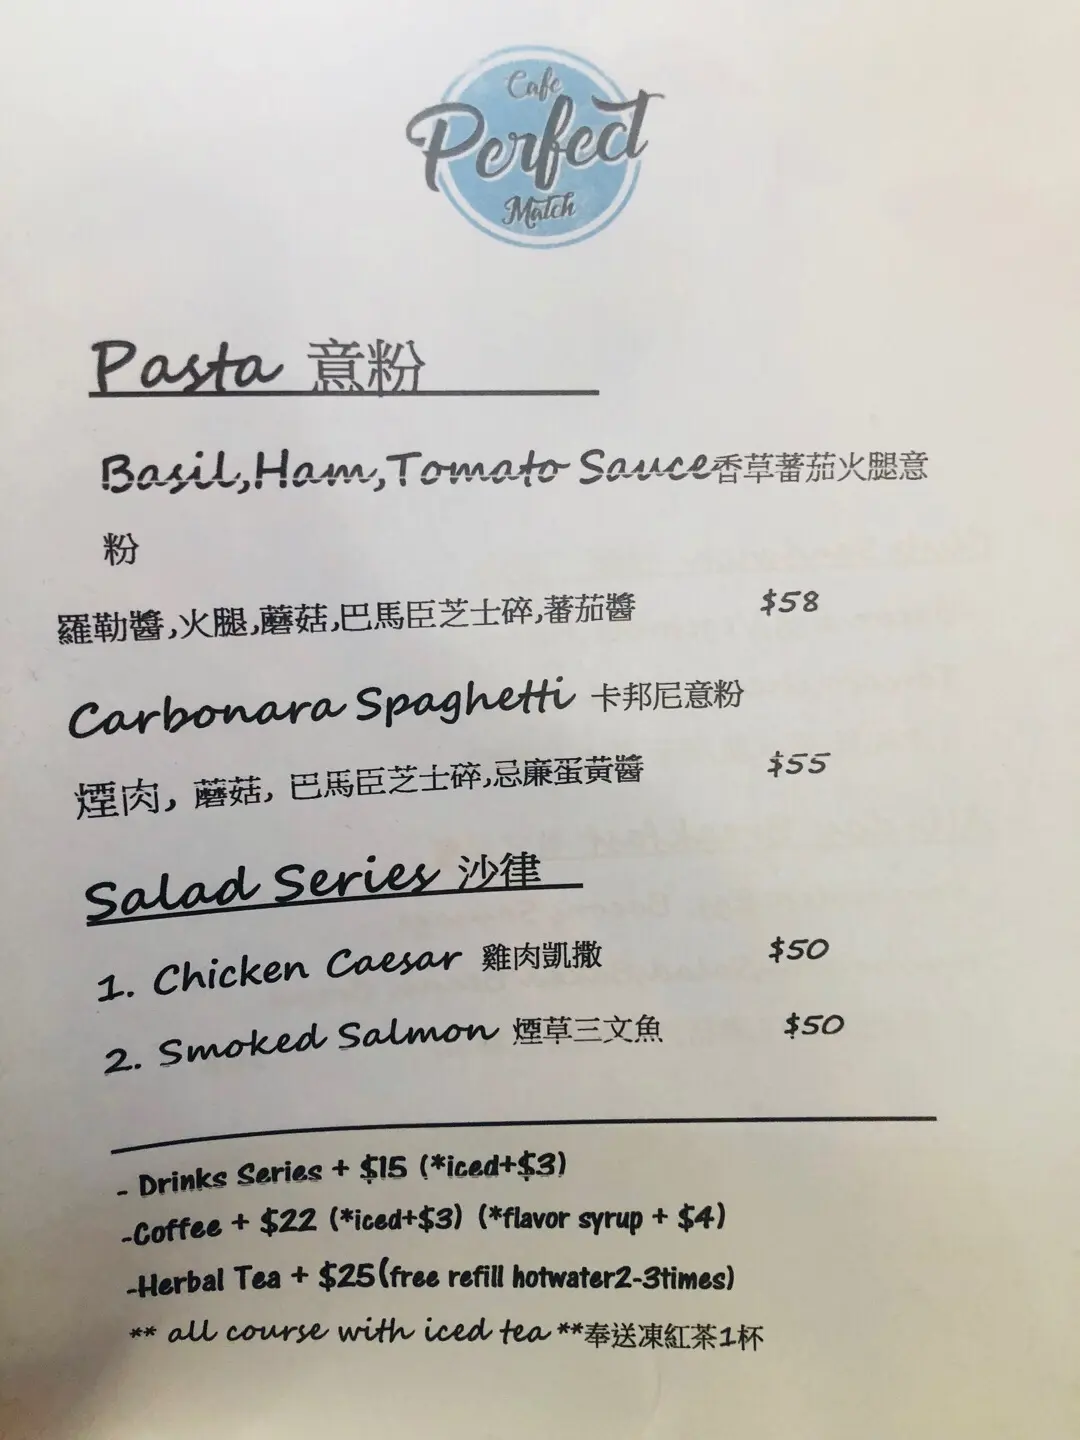 Cafe
Perfect
Match
Pasta 意粉
Basil,Ham,Tomato Sauce香草蕃茄火腿意
粉
羅勒醬,火腿,蘑菇,巴馬臣芝士碎,蕃茄醬 $58
Carbonara Spaghetti 卡邦尼意粉
煙肉, 蘑菇, 巴馬臣芝士碎,忌廉蛋黃醬 $55
Salad Series 沙律
1. Chicken Caesar 雞肉凱撒 $50
2. Smoked Salmon 煙草三文魚 $50
- Drinks Series + $15 (*iced+$3)
-Coffee + $22 (*iced+$3) (*flavor syrup + $4)
-Herbal Tea + $25(free refill hotwater2-3times)
** all course with iced tea **奉送凍紅茶1杯